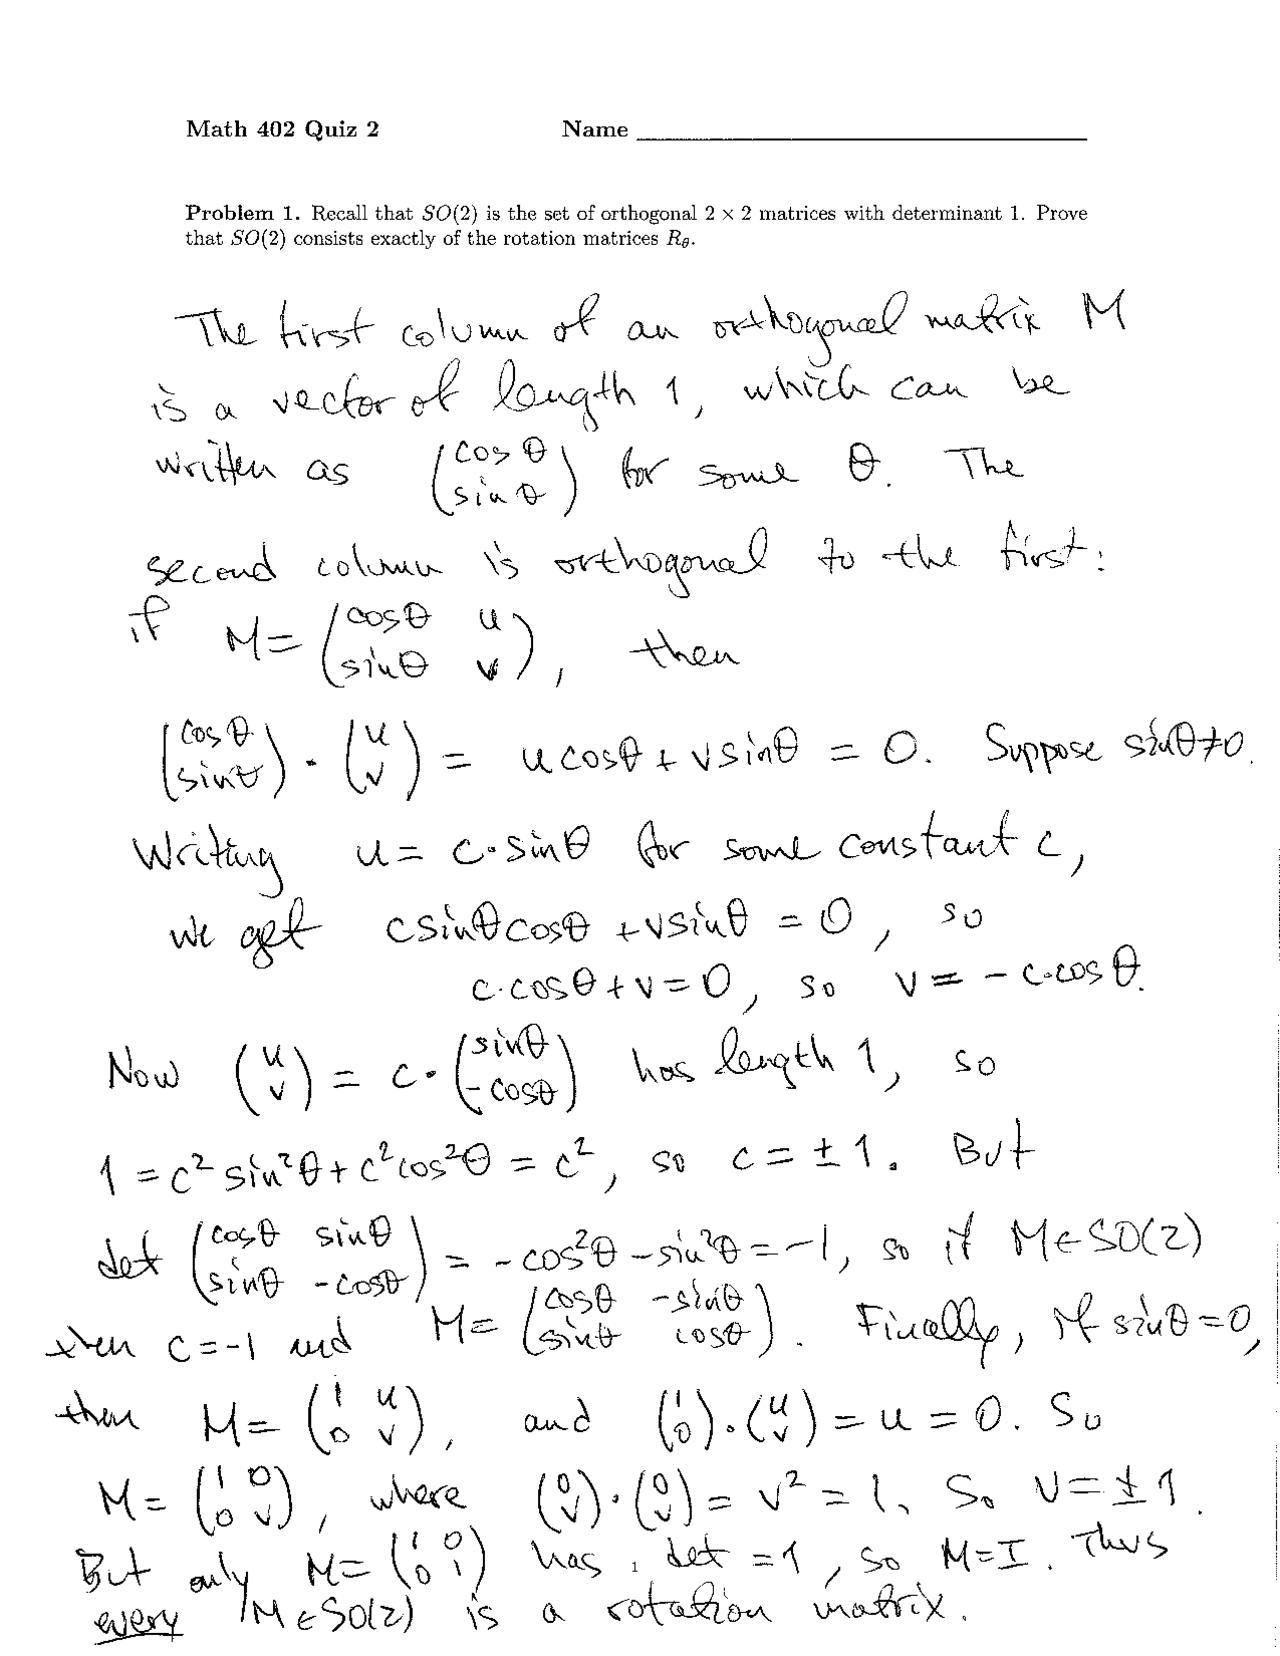 Math 402 Quiz 2 Name
Problem 1. Recall that SO(2) is the set of orthogonal 2 × 2 matrices with determinant 1. Prove
that SO(2) consists exactly of the rotation matrices R_θ.
The first column of an orthogonal matrix M
is a vector of length 1, which can be
written as (cosθ / sinθ) for some θ. The
second column is orthogonal to the first:
if M = (cosθ u / sinθ v), then
(cosθ / sinθ) · (u / v) = u cosθ + v sinθ = 0. Suppose sinθ≠0.
Writing u = c·sinθ for some constant c,
we get c sinθ cosθ + v sinθ = 0, so
c·cosθ + v = 0, so v = -c·cosθ.
Now (u / v) = c·(sinθ / -cosθ) has length 1, so
1 = c² sin²θ + c² cos²θ = c², so c = ±1. But
det (cosθ sinθ / sinθ -cosθ) = -cos²θ - sin²θ = -1, so if M∈SO(2)
then c=-1 and M = (cosθ -sinθ / sinθ cosθ). Finally, if sinθ=0,
then M = (1 u / 0 v), and (1 / 0)·(u / v) = u = 0. So
M = (1 0 / 0 v), where (0 / v)·(0 / v) = v² = 1. So v = ±1.
But only M = (1 0 / 0 1) has det = 1, so M=I. Thus
every M∈SO(2) is a rotation matrix.